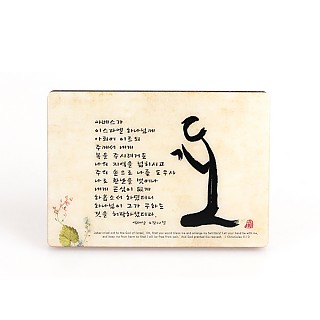 야베스가
이스라엘 하나님께
아뢰어 이르되
주께서 내게
복을 주시려거든
나의 지역을 넓히시고
주의 손으로 나를 도우사
나로 환난을 벗어나
내게 근심이 없게
하옵소서 하였더니
하나님이 그가 구하는
것을 허락하셨더라.
Jabez cried out to the God of Israel, "Oh, that you would bless me and enlarge my territory! Let your hand be with me,
and keep me from harm so that I will be free from pain." And God granted his request. 1 Chronicles 4:10